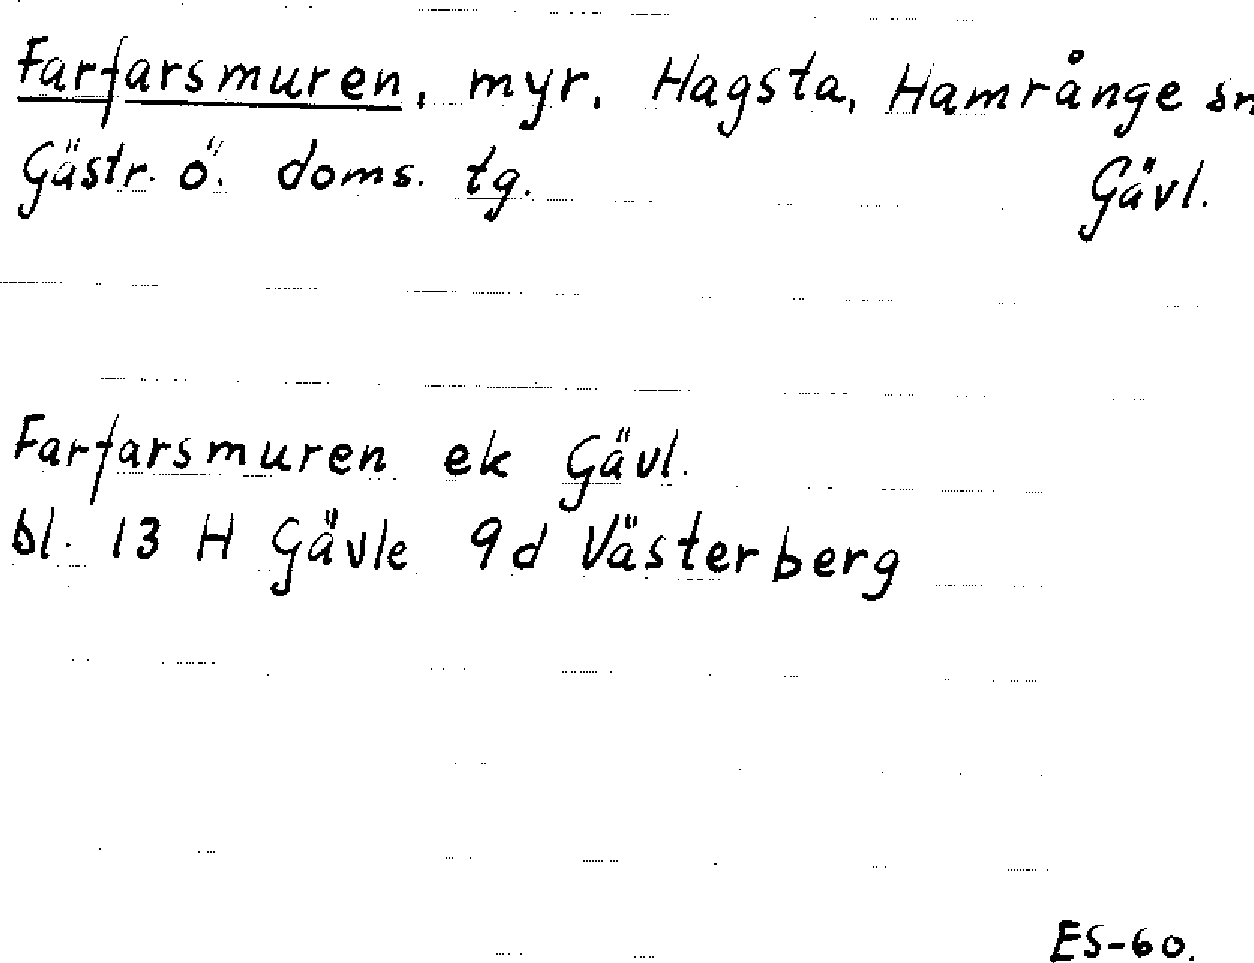 Farfarsmuren, myr, Hagsta, Hamrånge sn
Gästr. ö. doms. tg. Gävl.
Farfarsmuren ek Gävl.
bl. 13 H Gävle 9d Västerberg
ES-60.